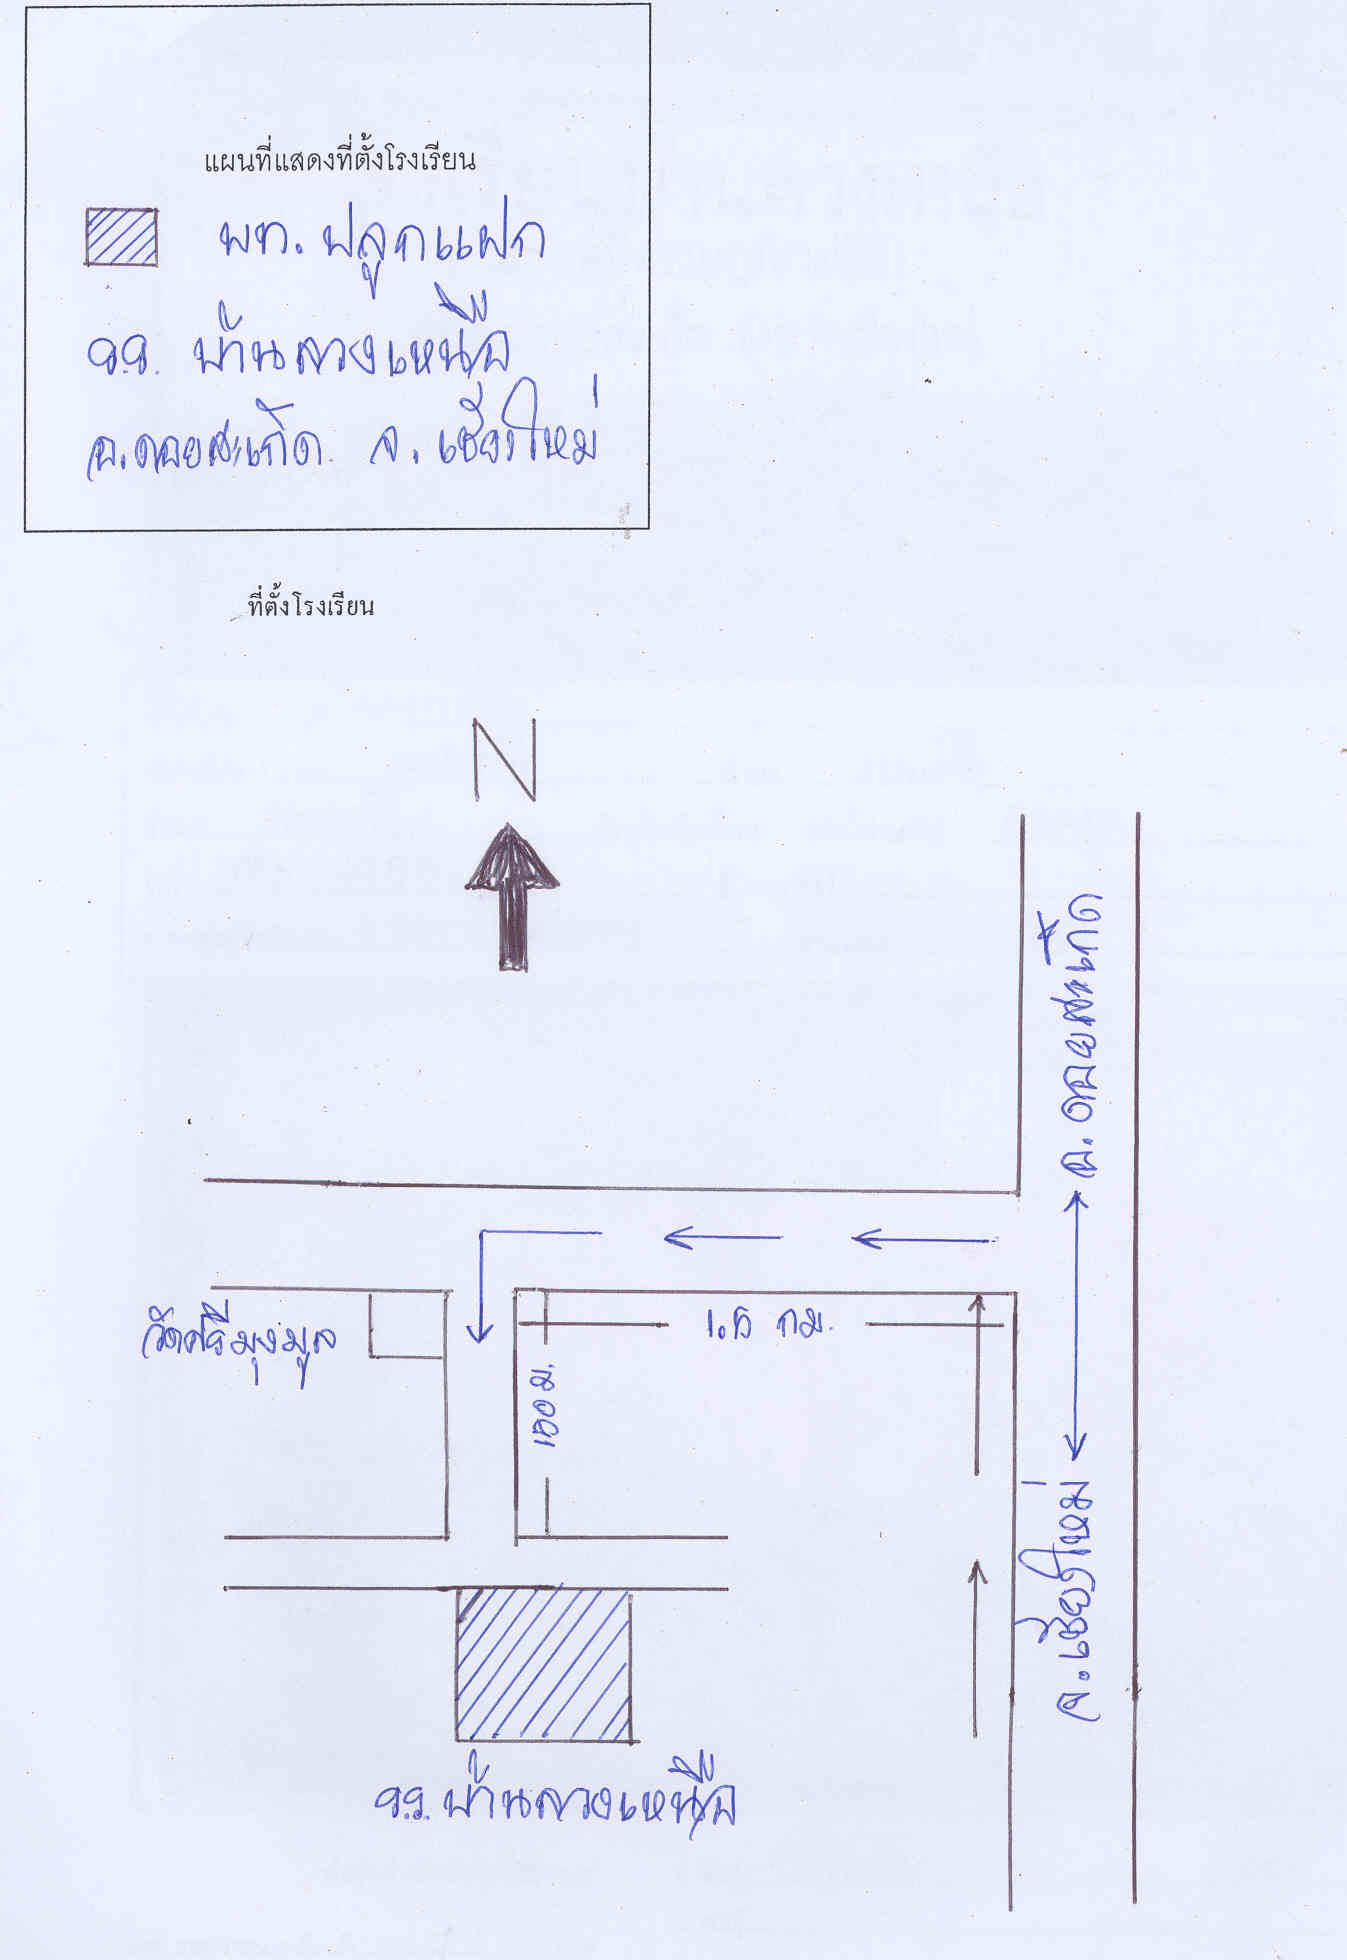 แผนที่แสดงที่ตั้งโรงเรียน
พท. ปลูกแฝก
รร. บ้านลวงเหนือ
อ.ดอยสะเก็ด จ. เชียงใหม่
ที่ตั้งโรงเรียน
N
อ. ดอยสะเก็ด
วัดศรีมุงมูล
1.5 กม.
100 ม.
จ. เชียงใหม่
รร. บ้านลวงเหนือ